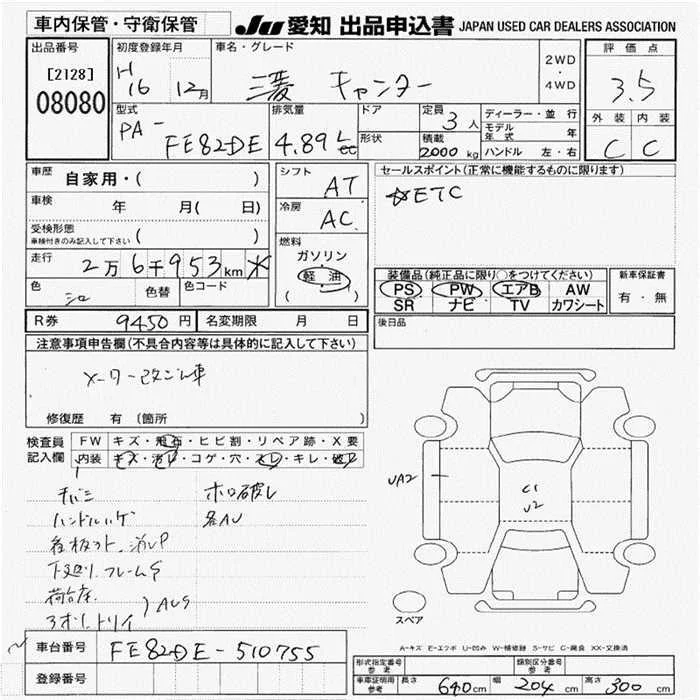 車内保管・守衛保管
JU 愛知 出品申込書 JAPAN USED CAR DEALERS ASSOCIATION
出品番号
[2128]
08080
初度登録年月
H
16 12月
車名・グレード
三菱 キャンター
2WD
・
4WD
評価点
3.5
外装 内装
C C
型式
PA-
FE82DE
排気量
4.89 L
cc
ドア
形状
定員
3人
積載
2000 kg
ディーラー・並行
モデル年式 年
ハンドル 左・右
車歴
自家用・( )
車検
年 月( 日)
受検形態
車検付きのみ記入して下さい ( )
走行
2万6千953km
色
シロ
色替
色コード
シフト
AT
冷房
AC
燃料
ガソリン
軽油
( )
セールスポイント(正常に機能するものに限ります)
☆ETC
装備品(純正品に限り○をつけてください)
PS PW エアB AW
SR ナビ TV カワシート
新車保証書
有・無
R券 9450円 名変期限 月 日
後日品
注意事項申告欄(不具合内容等は具体的に記入して下さい)
メーター改ざん車
修復歴 有 (箇所 )
検査員
記入欄
FW キズ・飛石・ヒビ割・リペア跡・X要
内装 キズ・汚レ・コゲ・穴・スレ・キレ・破レ
ホロ破レ
ハンドルハゲ
各AU
下廻り.フレームS
荷台床
AUS
UA2
C1
U2
スペア
A-キズ E-エクボ U-凹み W-補修跡 S-サビ C-腐食 XX-交換済
車台番号 FE82DE-510755
登録番号
形式指定番号
参考
類別区分番号
参考
車庫証明用
参考
長さ 640cm 幅 204cm 高さ 300cm